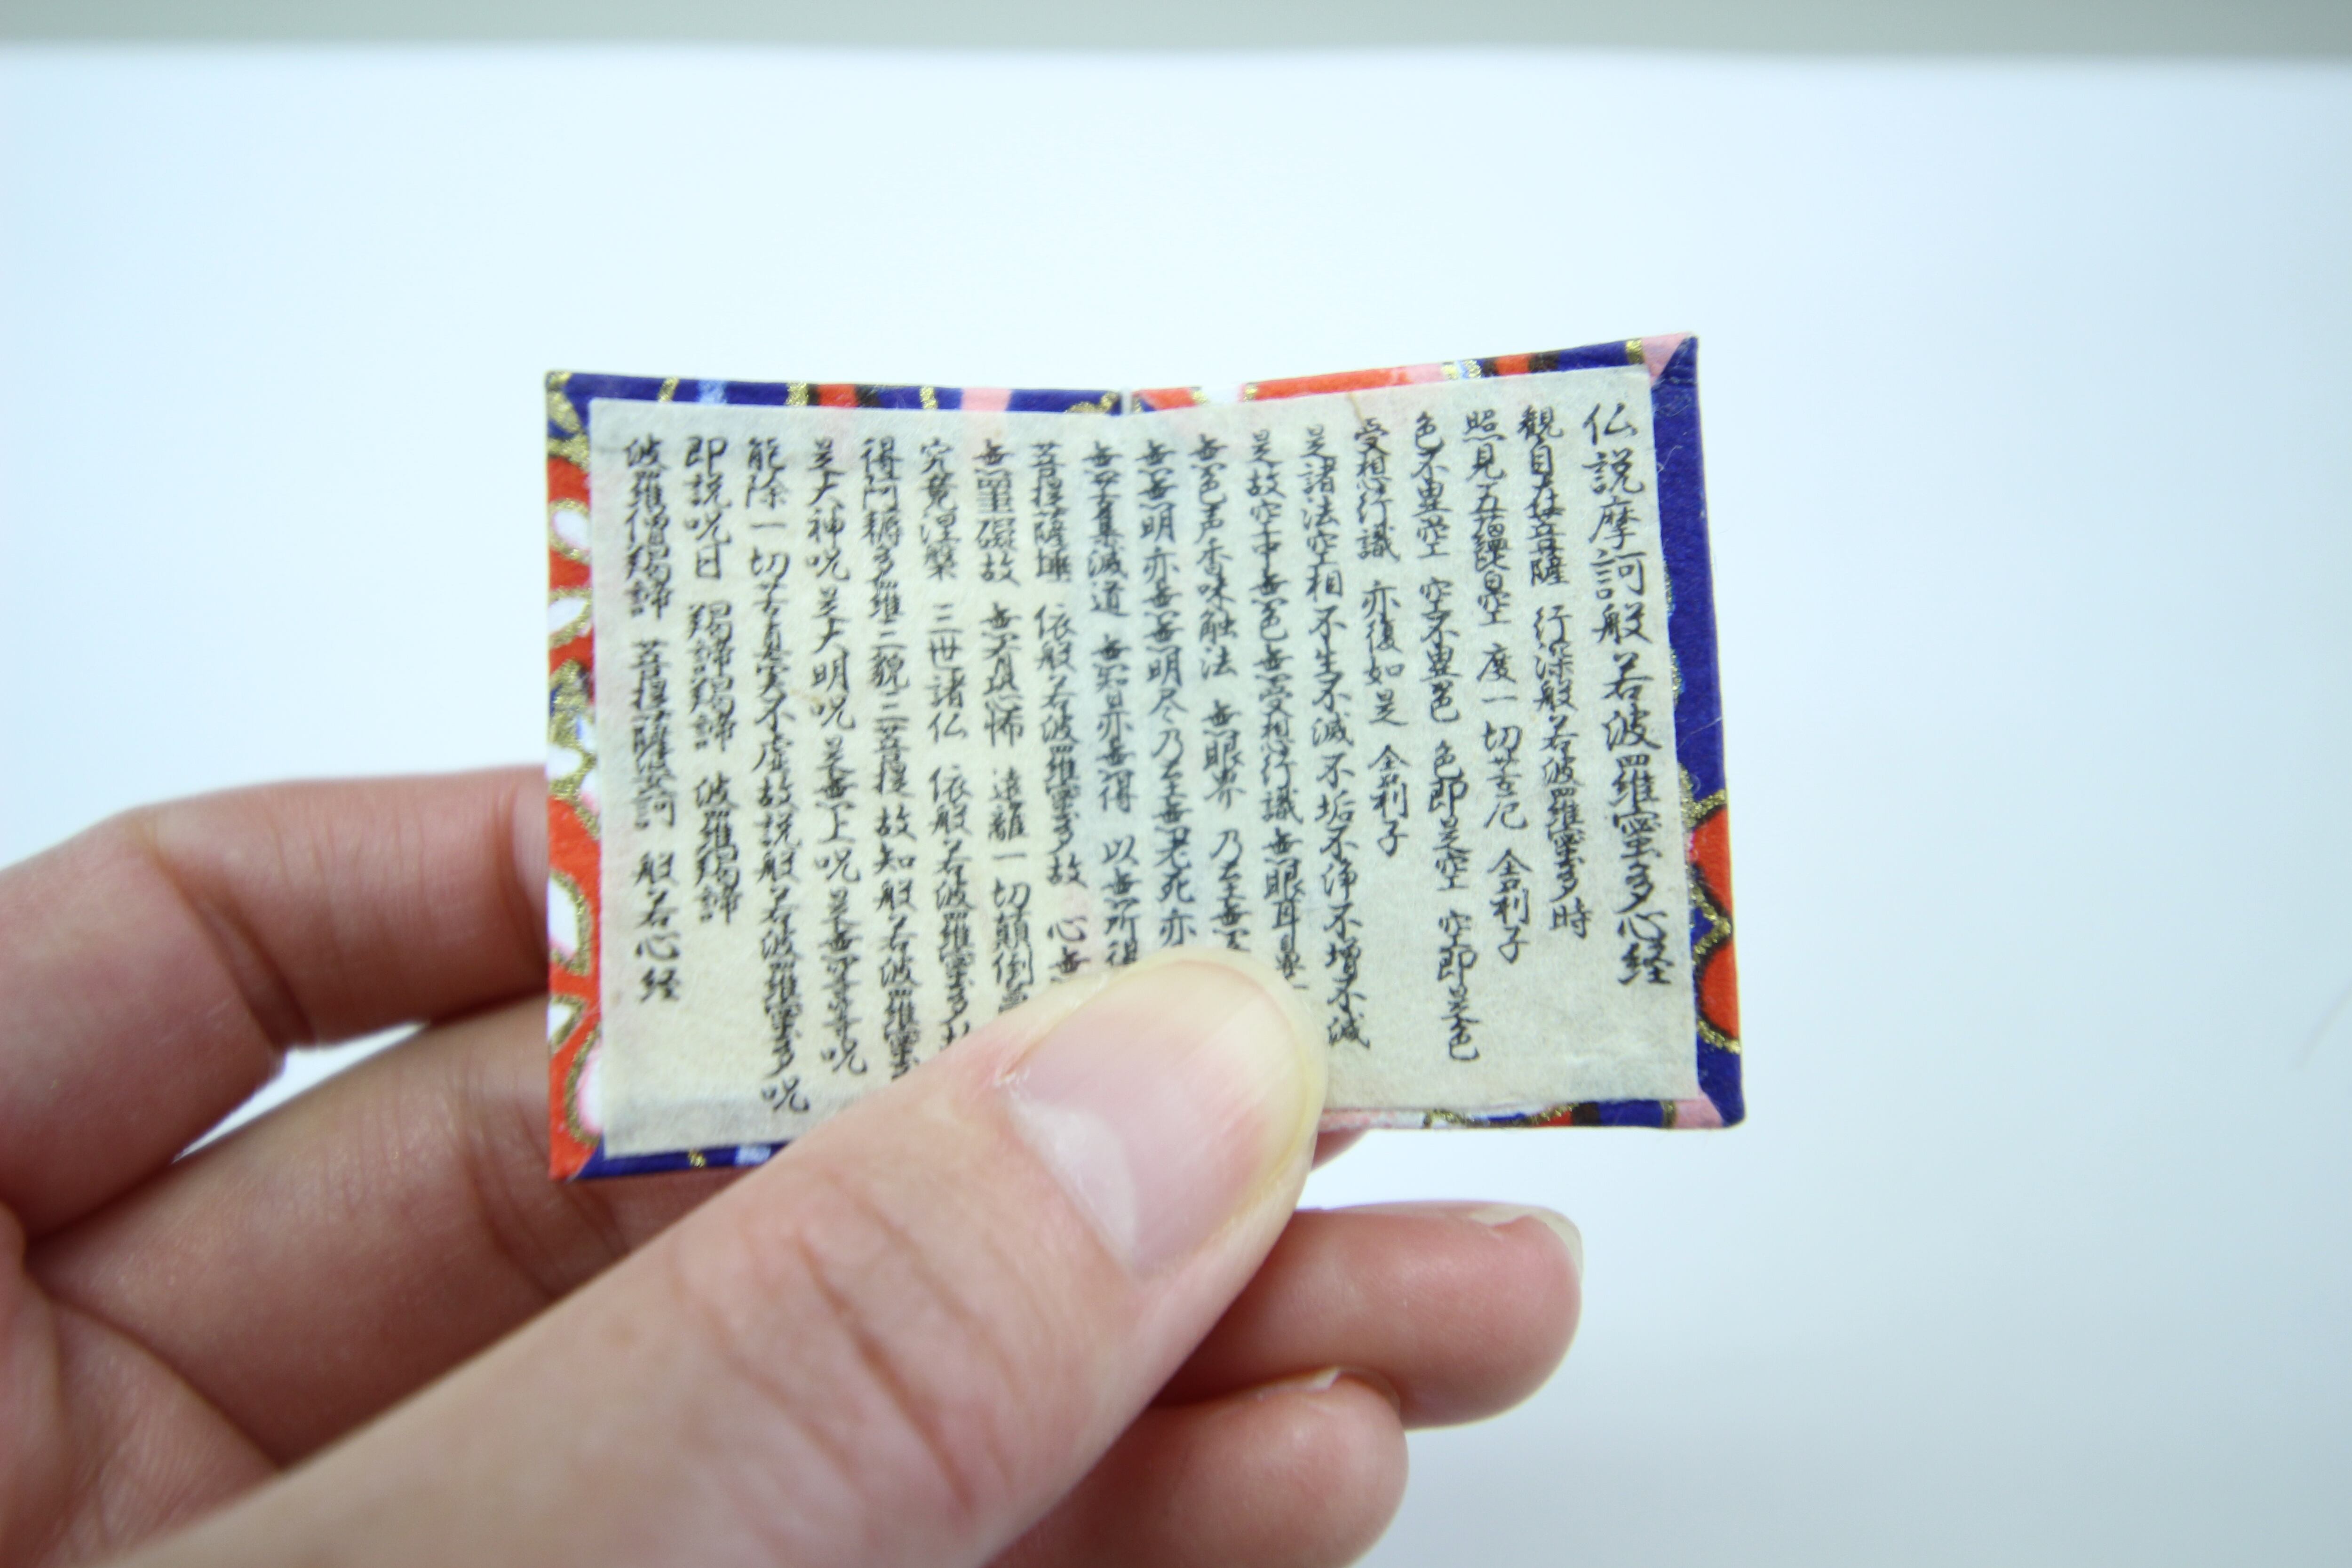 仏説摩訶般若波羅蜜多心経
観自在菩薩 行深般若波羅蜜多時
照見五蘊皆空 度一切苦厄 舎利子
色不異空 空不異色 色即是空 空即是色
受想行識 亦復如是 舎利子
是諸法空相 不生不滅 不垢不浄 不増不減
是故空中無色 無受想行識 無眼耳鼻
無色声香味触法 無眼界 乃至無
無無明 亦無無明尽 乃至無老死 亦
無苦集滅道 無智亦無得 以無所得
菩提薩埵 依般若波羅蜜多故 心無
無罣礙故 無有恐怖 遠離一切顛倒
究竟涅槃 三世諸仏 依般若波羅蜜多
得阿耨多羅三藐三菩提 故知般若波羅蜜
是大神呪 是大明呪 是無上呪 是無等等呪
能除一切苦 真実不虚 故説般若波羅蜜多呪
即説呪曰 羯諦羯諦 波羅羯諦
波羅僧羯諦 菩提薩婆訶 般若心経